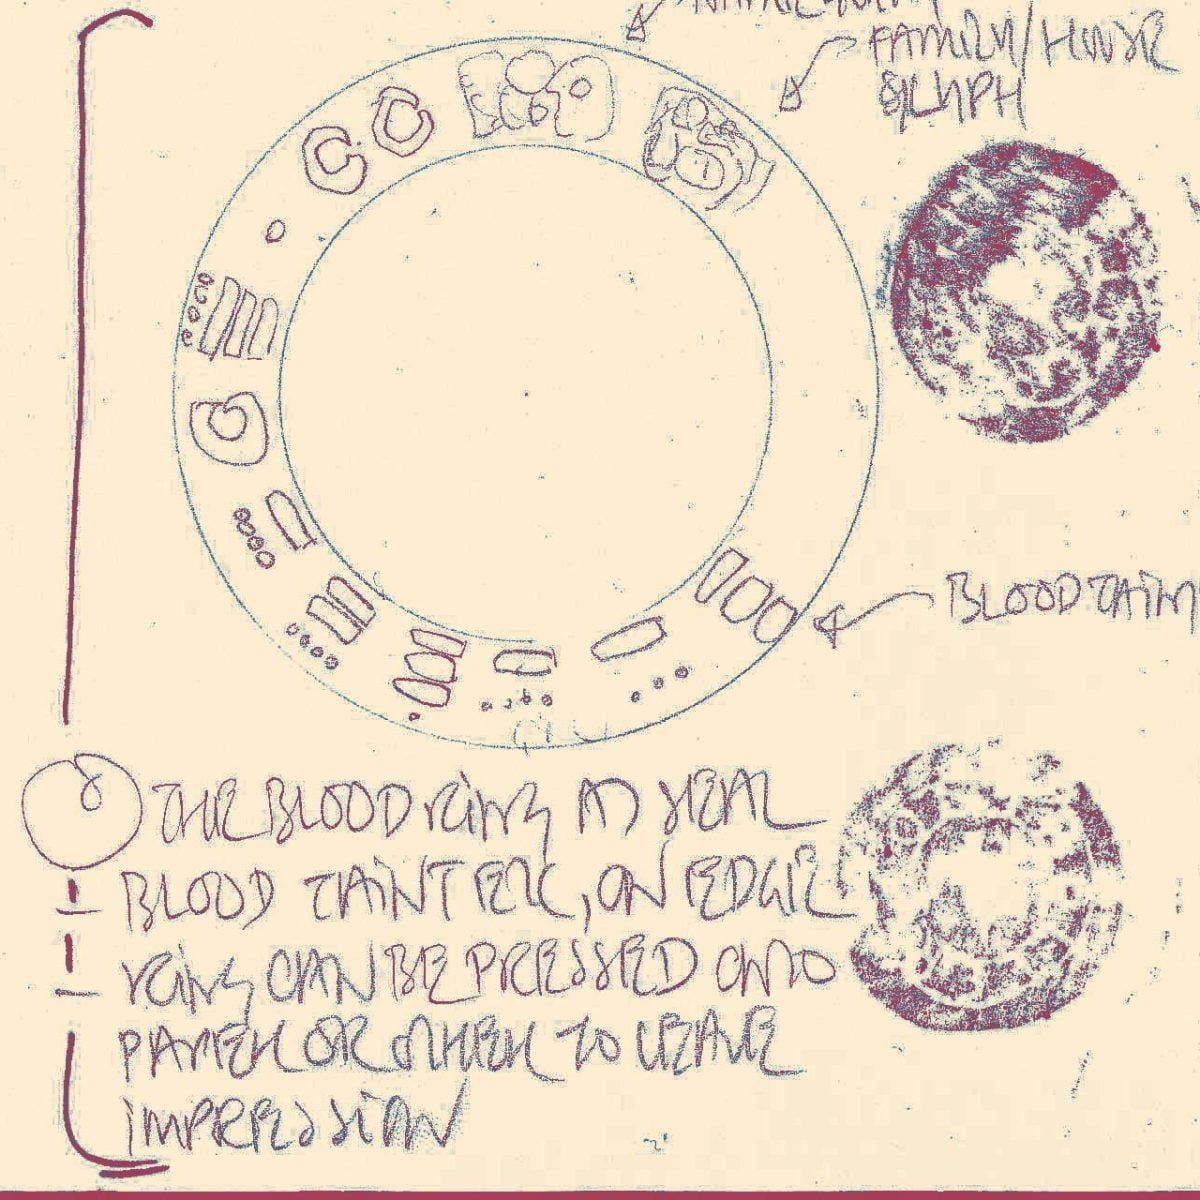 FAMILY/HOUSE
GLYPH
BLOOD TAINT
THE BLOOD RING AS SEAL
BLOOD TAINTER, ON EDGE
RING CAN BE PRESSED ONTO
PAPER OR OTHER TO LEAVE
IMPRESSION